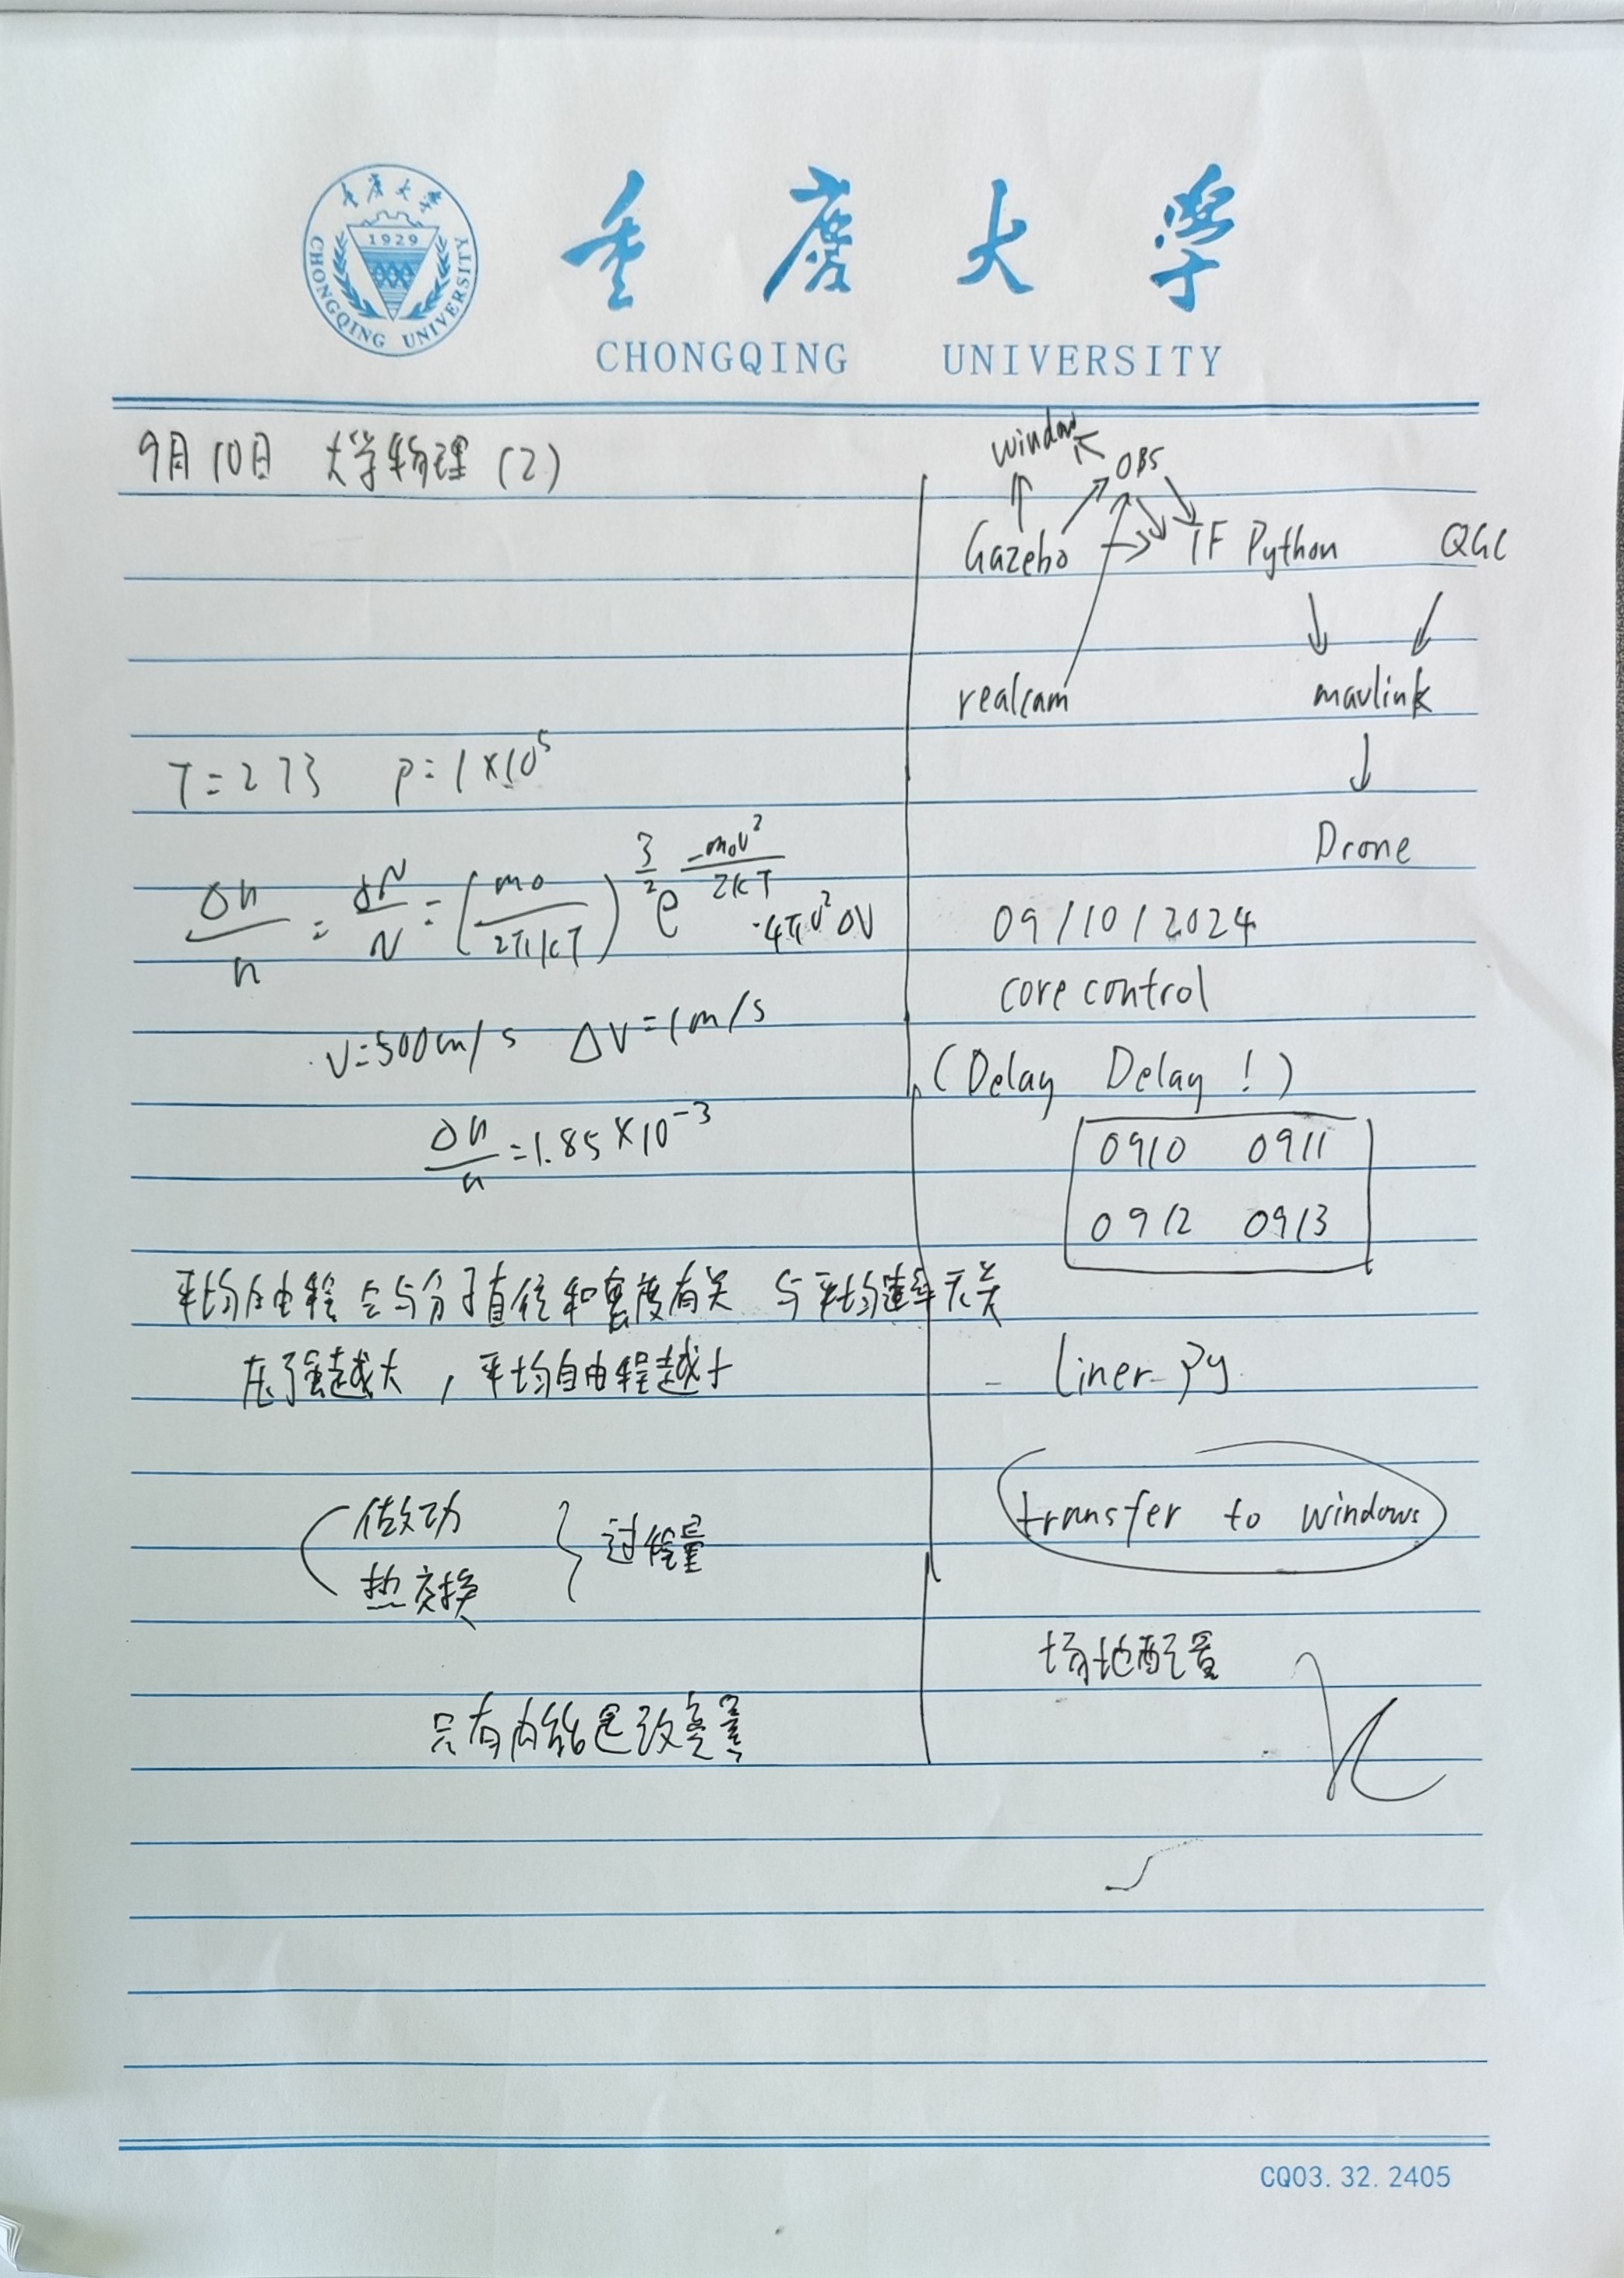 重庆大学
1929
CHONGQING UNIVERSITY
重庆大学
CHONGQING UNIVERSITY
9月10日 大学物理(2)
T=273 P=1×10⁵
Δn/n = dN/N = (m₀/2πkT)^(3/2) e^(-m₀v²/2kT) ·4πv²Δv
v=500m/s Δv=1m/s
Δn/n=1.85×10⁻³
平均自由程只与分子直径和密度有关 与平均速率无关
压强越大,平均自由程越小
做功
热交换
过程量
只有内能是改变量
window
OBS
Gazebo → TF Python QGC
realcam mavlink
Drone
09/10/2024
core control
(Delay Delay!)
0910 0911
0912 0913
- Liner-Py
transfer to windows
场地配置
CQ03.32.2405